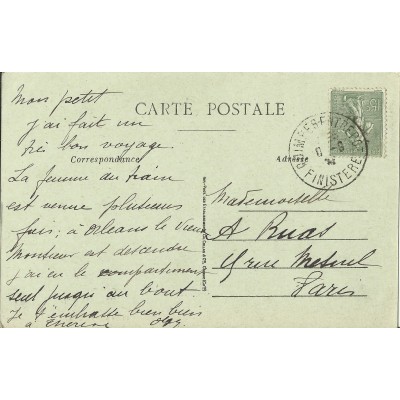 Mon petit
j'ai fait un
très bon voyage
CARTE POSTALE
Correspondance
Adresse
La femme du train
est venue plusieurs
fois; à Orléans le vieux
Monsieur est descendu
j'ai eu le compartiment
seul jusqu'au bout.
Je t'embrasse bien bien
à
Mademoiselle
A Ruas
rue
Paris
QUIMPER
FINISTERE